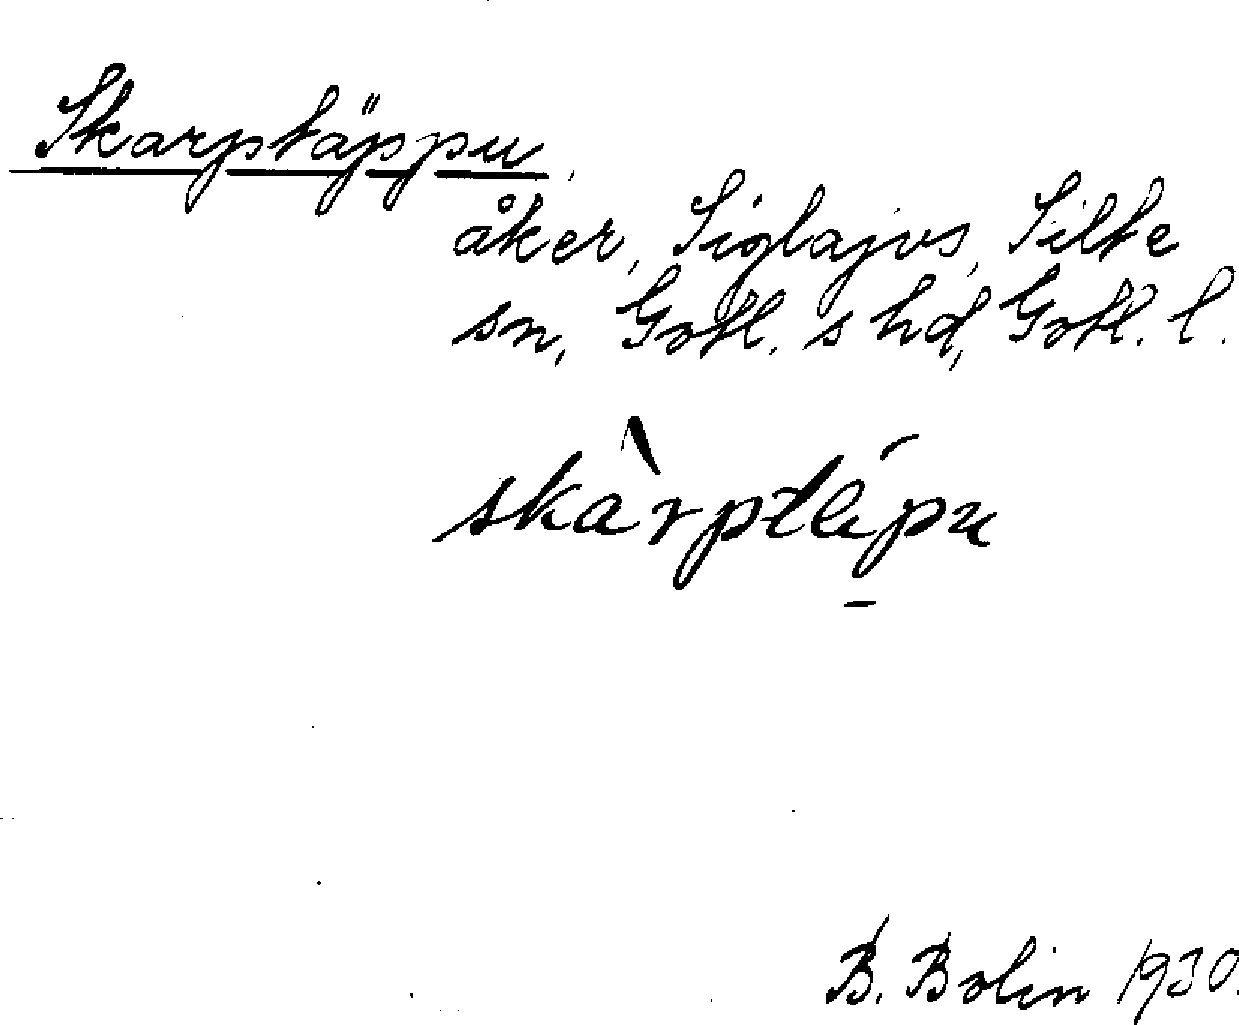 Skarptäppu,
åker, Siglajvs, Silte
sn, Gotl. s hd, Gotl. l.
skàrptépu
B. Bolin 1930.